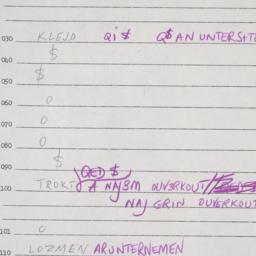 030 KLEJD QI $ Q$ AN UNTERSITE
040 $
050 $
060 O
070 O
080 O
090 $
QED $
100 TROKT A NAJBM OUVERKOUT
NAJ GRIN OUVERKOUT
101 O
110 LOZMEN ARUNTERNEMEN